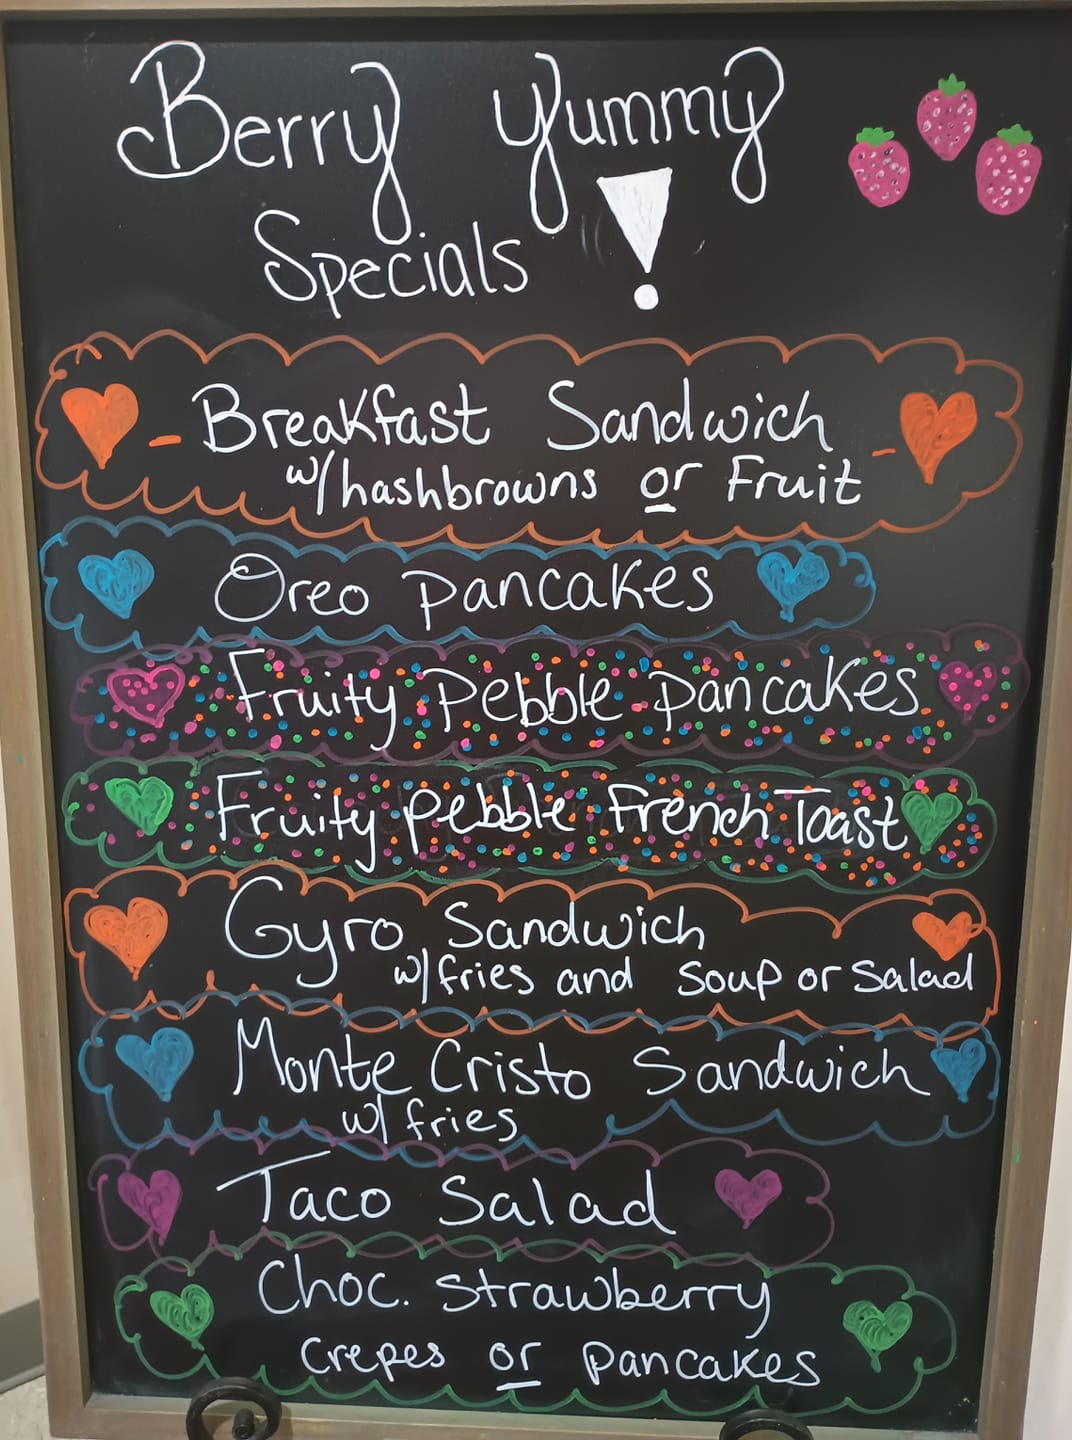 Berry Yummy
Specials!
- Breakfast Sandwich -
w/hashbrowns or Fruit
Oreo pancakes
Fruity Pebble pancakes
Fruity pebble French Toast
Gyro Sandwich
w/fries and Soup or Salad
Monte Cristo Sandwich
w/ fries
Taco Salad
Choc. Strawberry
crepes or pancakes